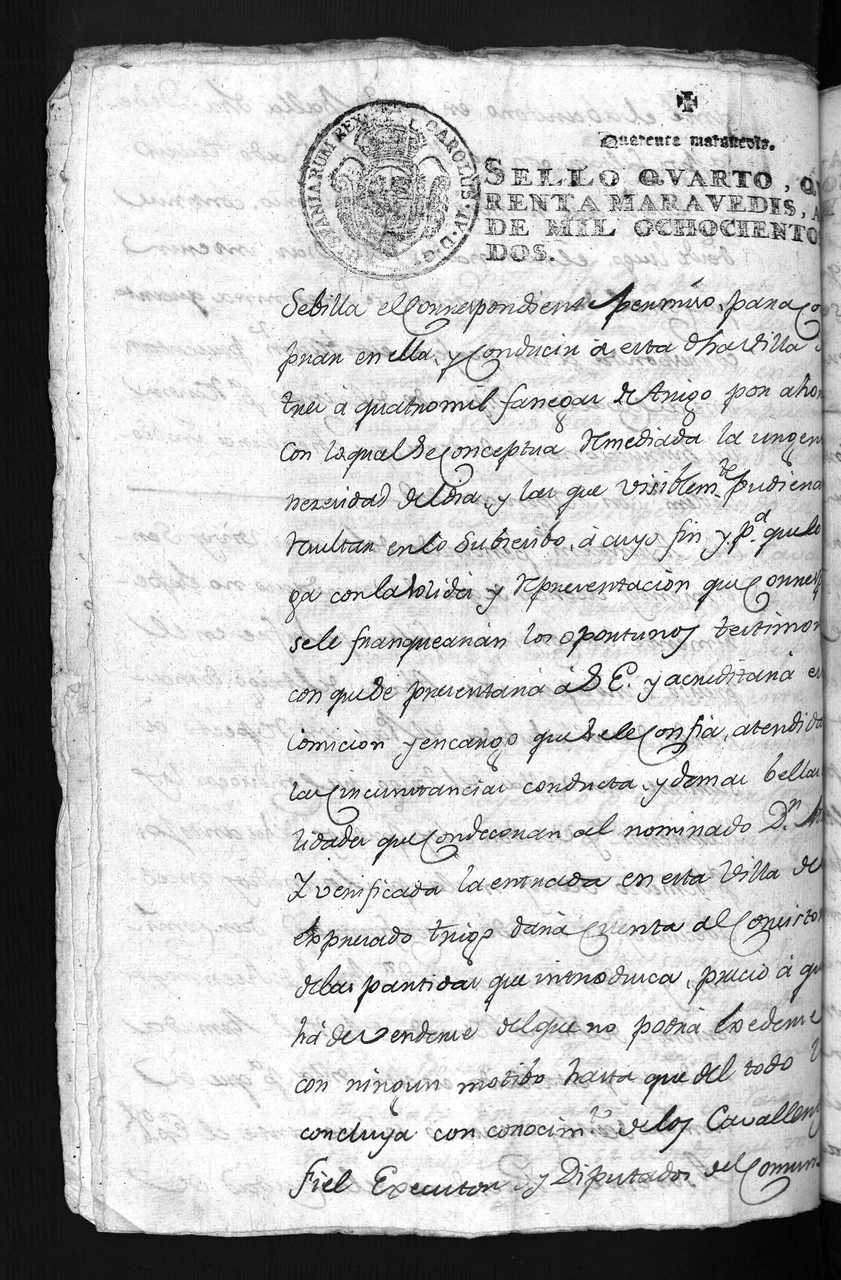 HISPANIARUM REX CAROLUS·IV·D·G·
Quarenta maravedis.
SELLO QVARTO, QV
RENTA MARAVEDIS, A
DE MIL OCHOCIENTO
DOS.
Sebilla el Correspondiente permiso, para Co
prar en ella, y Conducir â esta dha villa
tres â quatromil fanegas de trigo por ahor
con lo qual se Conceptua Remediada la urgen
nezesidad del dia, y las que visiblemte. pudieran
Resultar en lo Subcesibo, â cuyo fin y pa. que lo
ga con la solidez y Representacion que Corres
sele franquearán los oportunos testimon
con que se presentará â S. E. y acreditará e
Comicion y encargo que se le Confia, atendida
las Circunstancias conducta, y demas bellas
lidades que Condecoran al nominado Dn.
Y verificada la entrada en esta Villa de
expresado trigo dará Cuenta al Concisto
de las partidas que introdusca, precio â q
há de venderse del que no podrá Excederse
con ningun motibo hasta que del todo
concluya con conocimto. de los Cavallero
Fiel Executor y Diputados del Comun